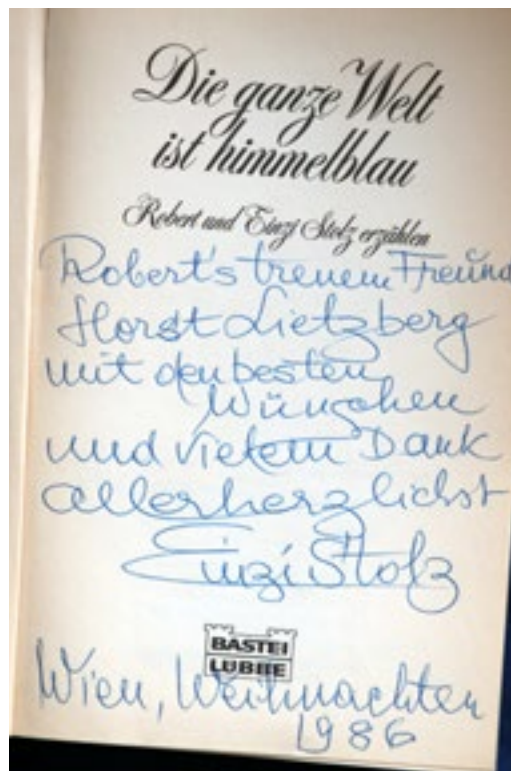 Die ganze Welt
ist himmelblau
Robert und Einzi Stolz erzählen
Robert's treuem Freund
Horst Lietzberg
mit den besten
Wünschen
und vielem Dank
allerherzlichst
Einzi Stolz
BASTEI
LÜBBE
Wien, Weihnachten
1986